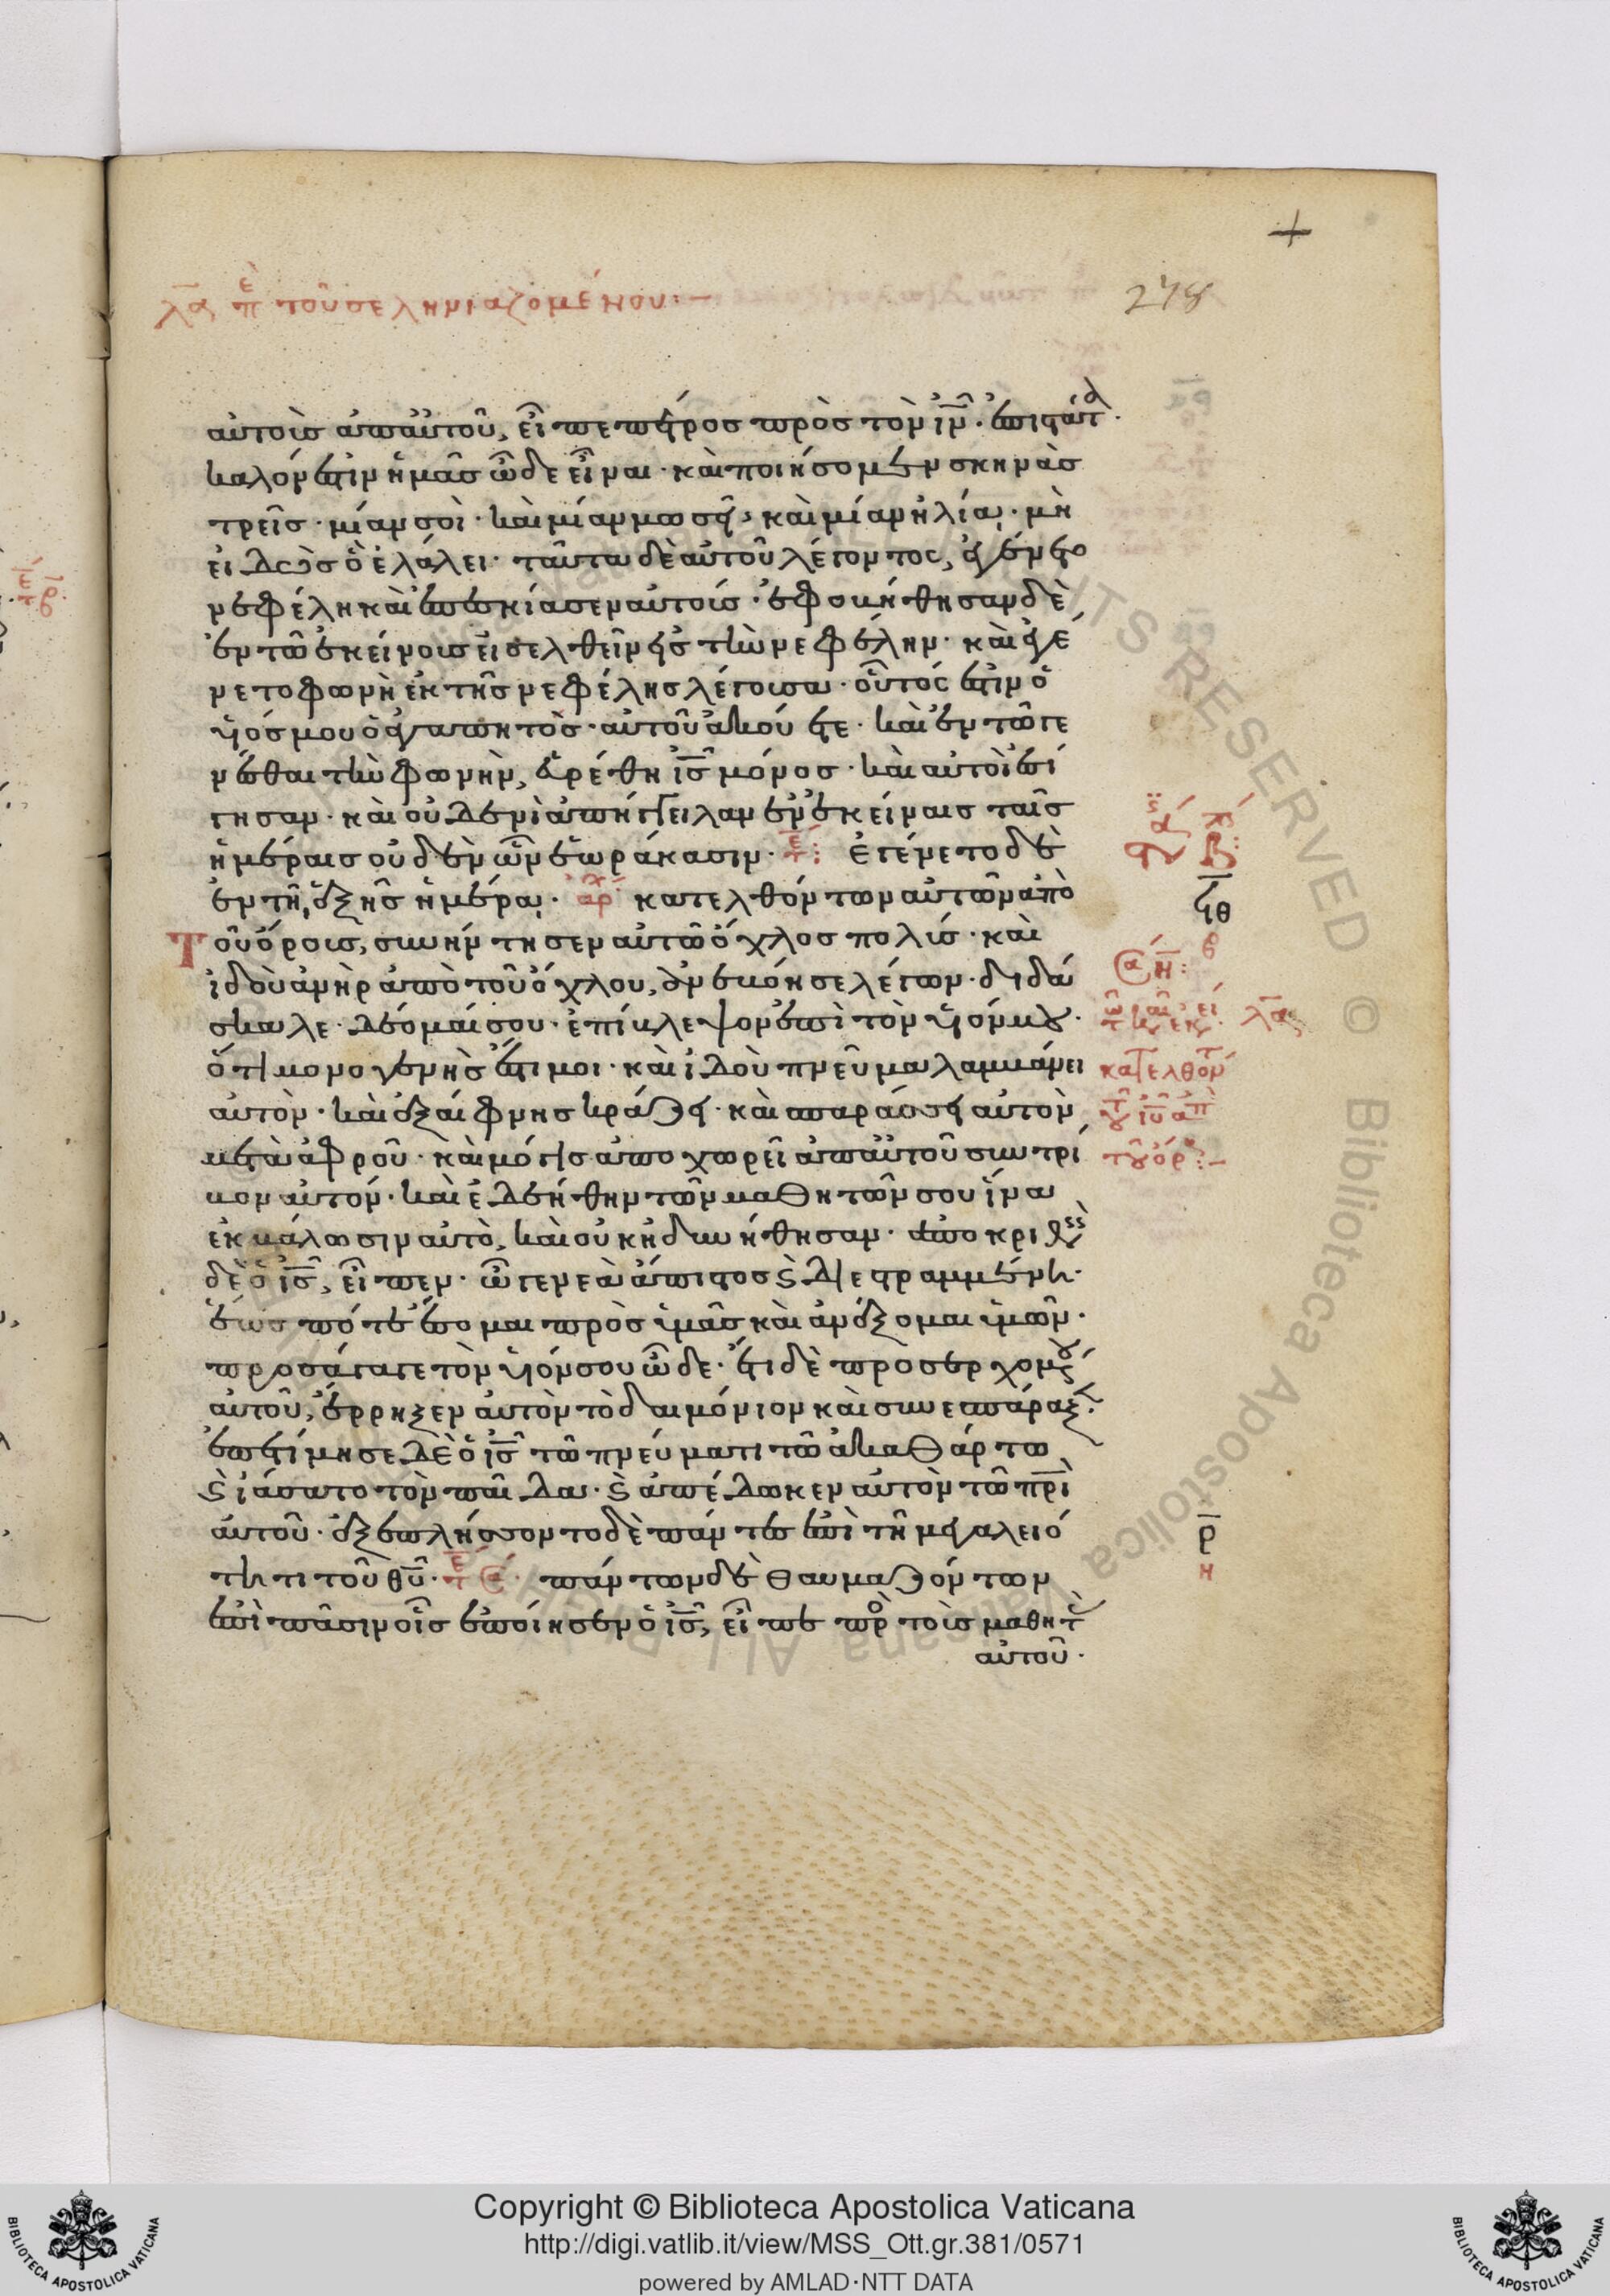 +
278
λα π̅ε̅ τοῦ σεληνιαζομένου:–
αὐτοὺς ἀπ' αὐτοῦ, εἶπε πέτρος πρὸς τὸν ι̅ν̅. ἐπιστάτ.
καλόν ἐστιν ἡμᾶς ὧδε εἶναι. καὶ ποιήσομεν σκηνὰς
τρεῖς. μίαν σοὶ. καὶ μίαν μωσῆ, καὶ μίαν ἠλία. μὴ
εἰδὼς ὃ ἐλάλει. ταῦτα δὲ αὐτοῦ λέγοντος, ἐγένετο
νεφέλη καὶ ἐπεσκίασεν αὐτοὺς. ἐφοβήθησαν δὲ
ἐν τῶ ἐκείνους εἰσελθεῖν εἰς τὴν νεφέλην. καὶ ἐγέ
νετο φωνὴ ἐκ τῆς νεφέλης λέγουσα. οὗτός ἐστιν ὁ
υἱός μου ὁ ἀγαπητὸς. αὐτοῦ ἀκούετε. καὶ ἐν τῶ γε
νέσθαι τὴν φωνὴν, εὑρέθη ι̅ς̅ μόνος. καὶ αὐτοὶ ἐσί
γησαν. καὶ οὐδενὶ ἀπήγγειλαν ἐν ἐκείναις ταῖς
ἡμέραις οὐδὲν ὧν ἑωράκασιν. τε: Ἐγένετο δὲ
ἐν τῆ ἑξῆς ἡμέρα. ἀρχ κατελθόντων αὐτῶν ἀπὸ
Τοῦ ὄρους, συνήντησεν αὐτῶ ὄχλος πολύς. καὶ
ἰδοὺ ἀνὴρ ἀπὸ τοῦ ὄχλου, ἀνεβόησε λέγων. διδά
σκαλε. δέομαί σου. ἐπίβλεψον ἐπὶ τὸν υἱόν μου.
ὅτι μονογενὴς ἐστι μοι. καὶ ἰδοὺ πνεῦμα λαμβάνει
αὐτὸν. καὶ ἐξαίφνης κράζει. καὶ σπαράσσει αὐτὸν
μετὰ ἀφροῦ. καὶ μόγις ἀποχωρεῖ ἀπ' αὐτοῦ συντρί
βον αὐτόν. καὶ ἐδεήθην τῶν μαθητῶν σου ἵνα
ἐκβάλωσιν αὐτὸ, καὶ οὐκ ἠδυνήθησαν. ἀποκριθεὶς
δὲ ὁ ι̅ς̅, εἶπεν. ὦ γενεὰ ἄπιστος καὶ διεστραμμένη.
ἕως πότε ἔσομαι πρὸς ὑμᾶς καὶ ἀνέξομαι ὑμῶν.
προσάγαγε τὸν υἱόν σου ὧδε. ἔτι δὲ προσερχομένου
αὐτοῦ, ἔρρηξεν αὐτὸν τὸ δαιμόνιον καὶ συνεσπάραξε.
ἐπετίμησε δὲ ὁ ι̅ς̅ τῶ πνεύματι τῶ ἀκαθάρτω
καὶ ἰάσατο τὸν παῖδα. καὶ ἀπέδωκεν αὐτὸν τῶ π̅ρ̅ι̅
αὐτοῦ. ἐξεπλήσσοντο δὲ πάντες ἐπὶ τῆ μεγαλειό
τητι τοῦ θ̅υ̅. τε πάντων δὲ θαυμαζόντων
ἐπὶ πᾶσιν οἷς ἐποίησεν ὁ ι̅ς̅, εἶπε πρὸ τοὺς μαθητὰ
αὐτοῦ.
ϟθ
β
λα
κατελθόν
τ ι̅υ̅ ἀπὸ
τοῦ ὄρ:–
ρ̅
η
Copyright © Biblioteca Apostolica Vaticana
http://digi.vatlib.it/view/MSS_Ott.gr.381/0571
powered by AMLAD·NTT DATA
BIBLIOTECA APOSTOLICA VATICANA
BIBLIOTECA APOSTOLICA VATICANA